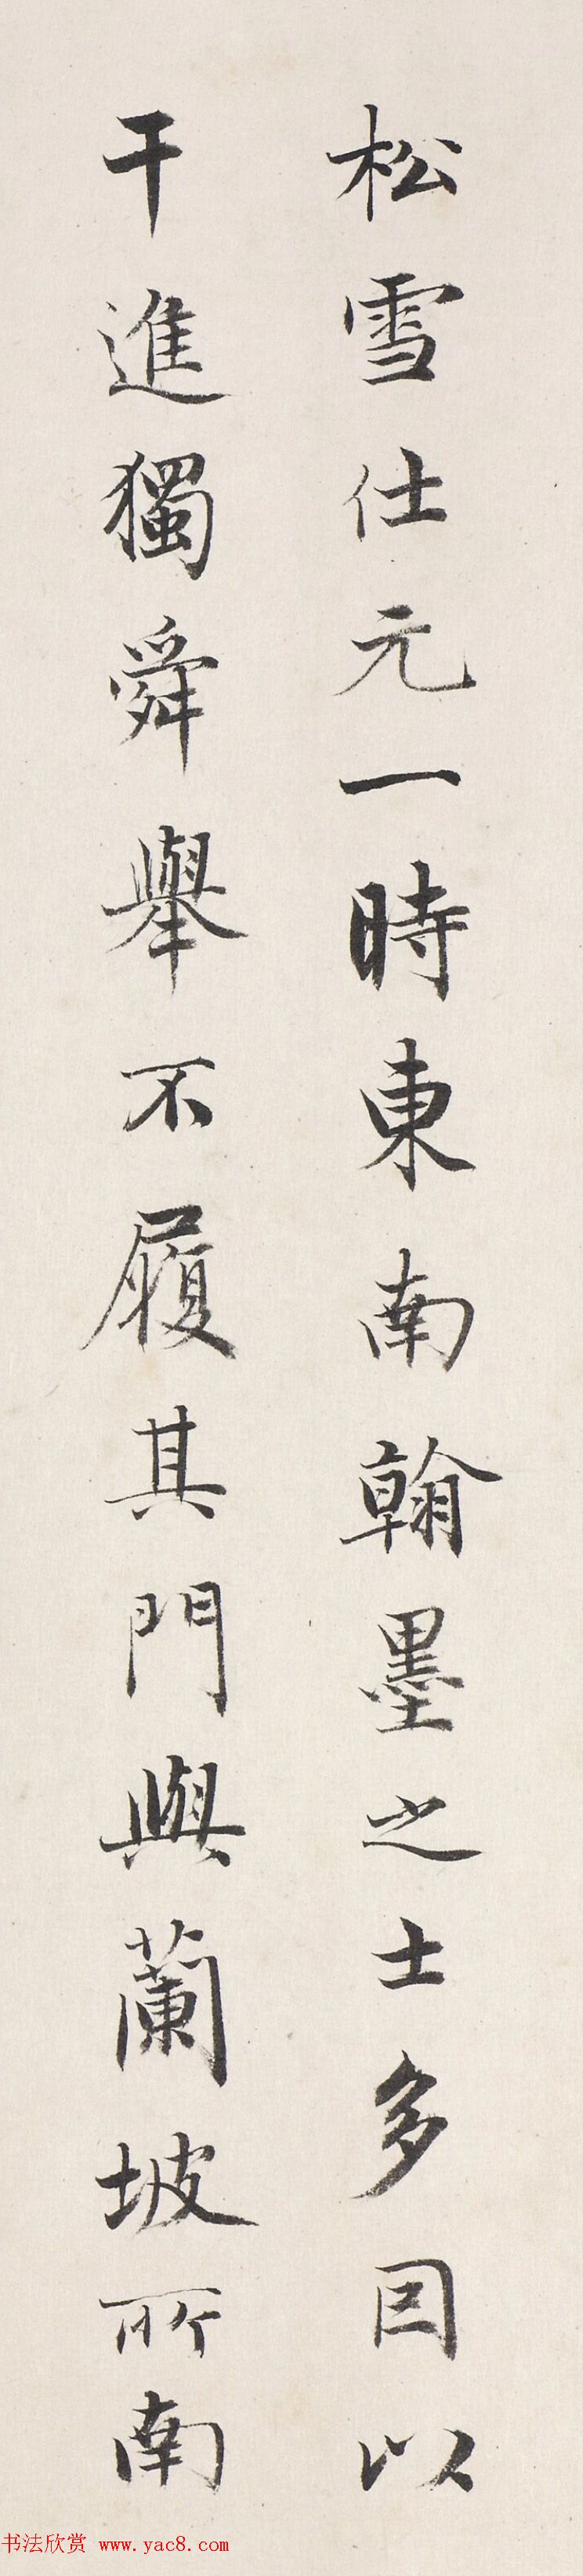 松雪仕元一時東南翰墨之士多因以
干進獨舜舉不履其門與蘭坡所南
书法欣赏 www.yac8.com